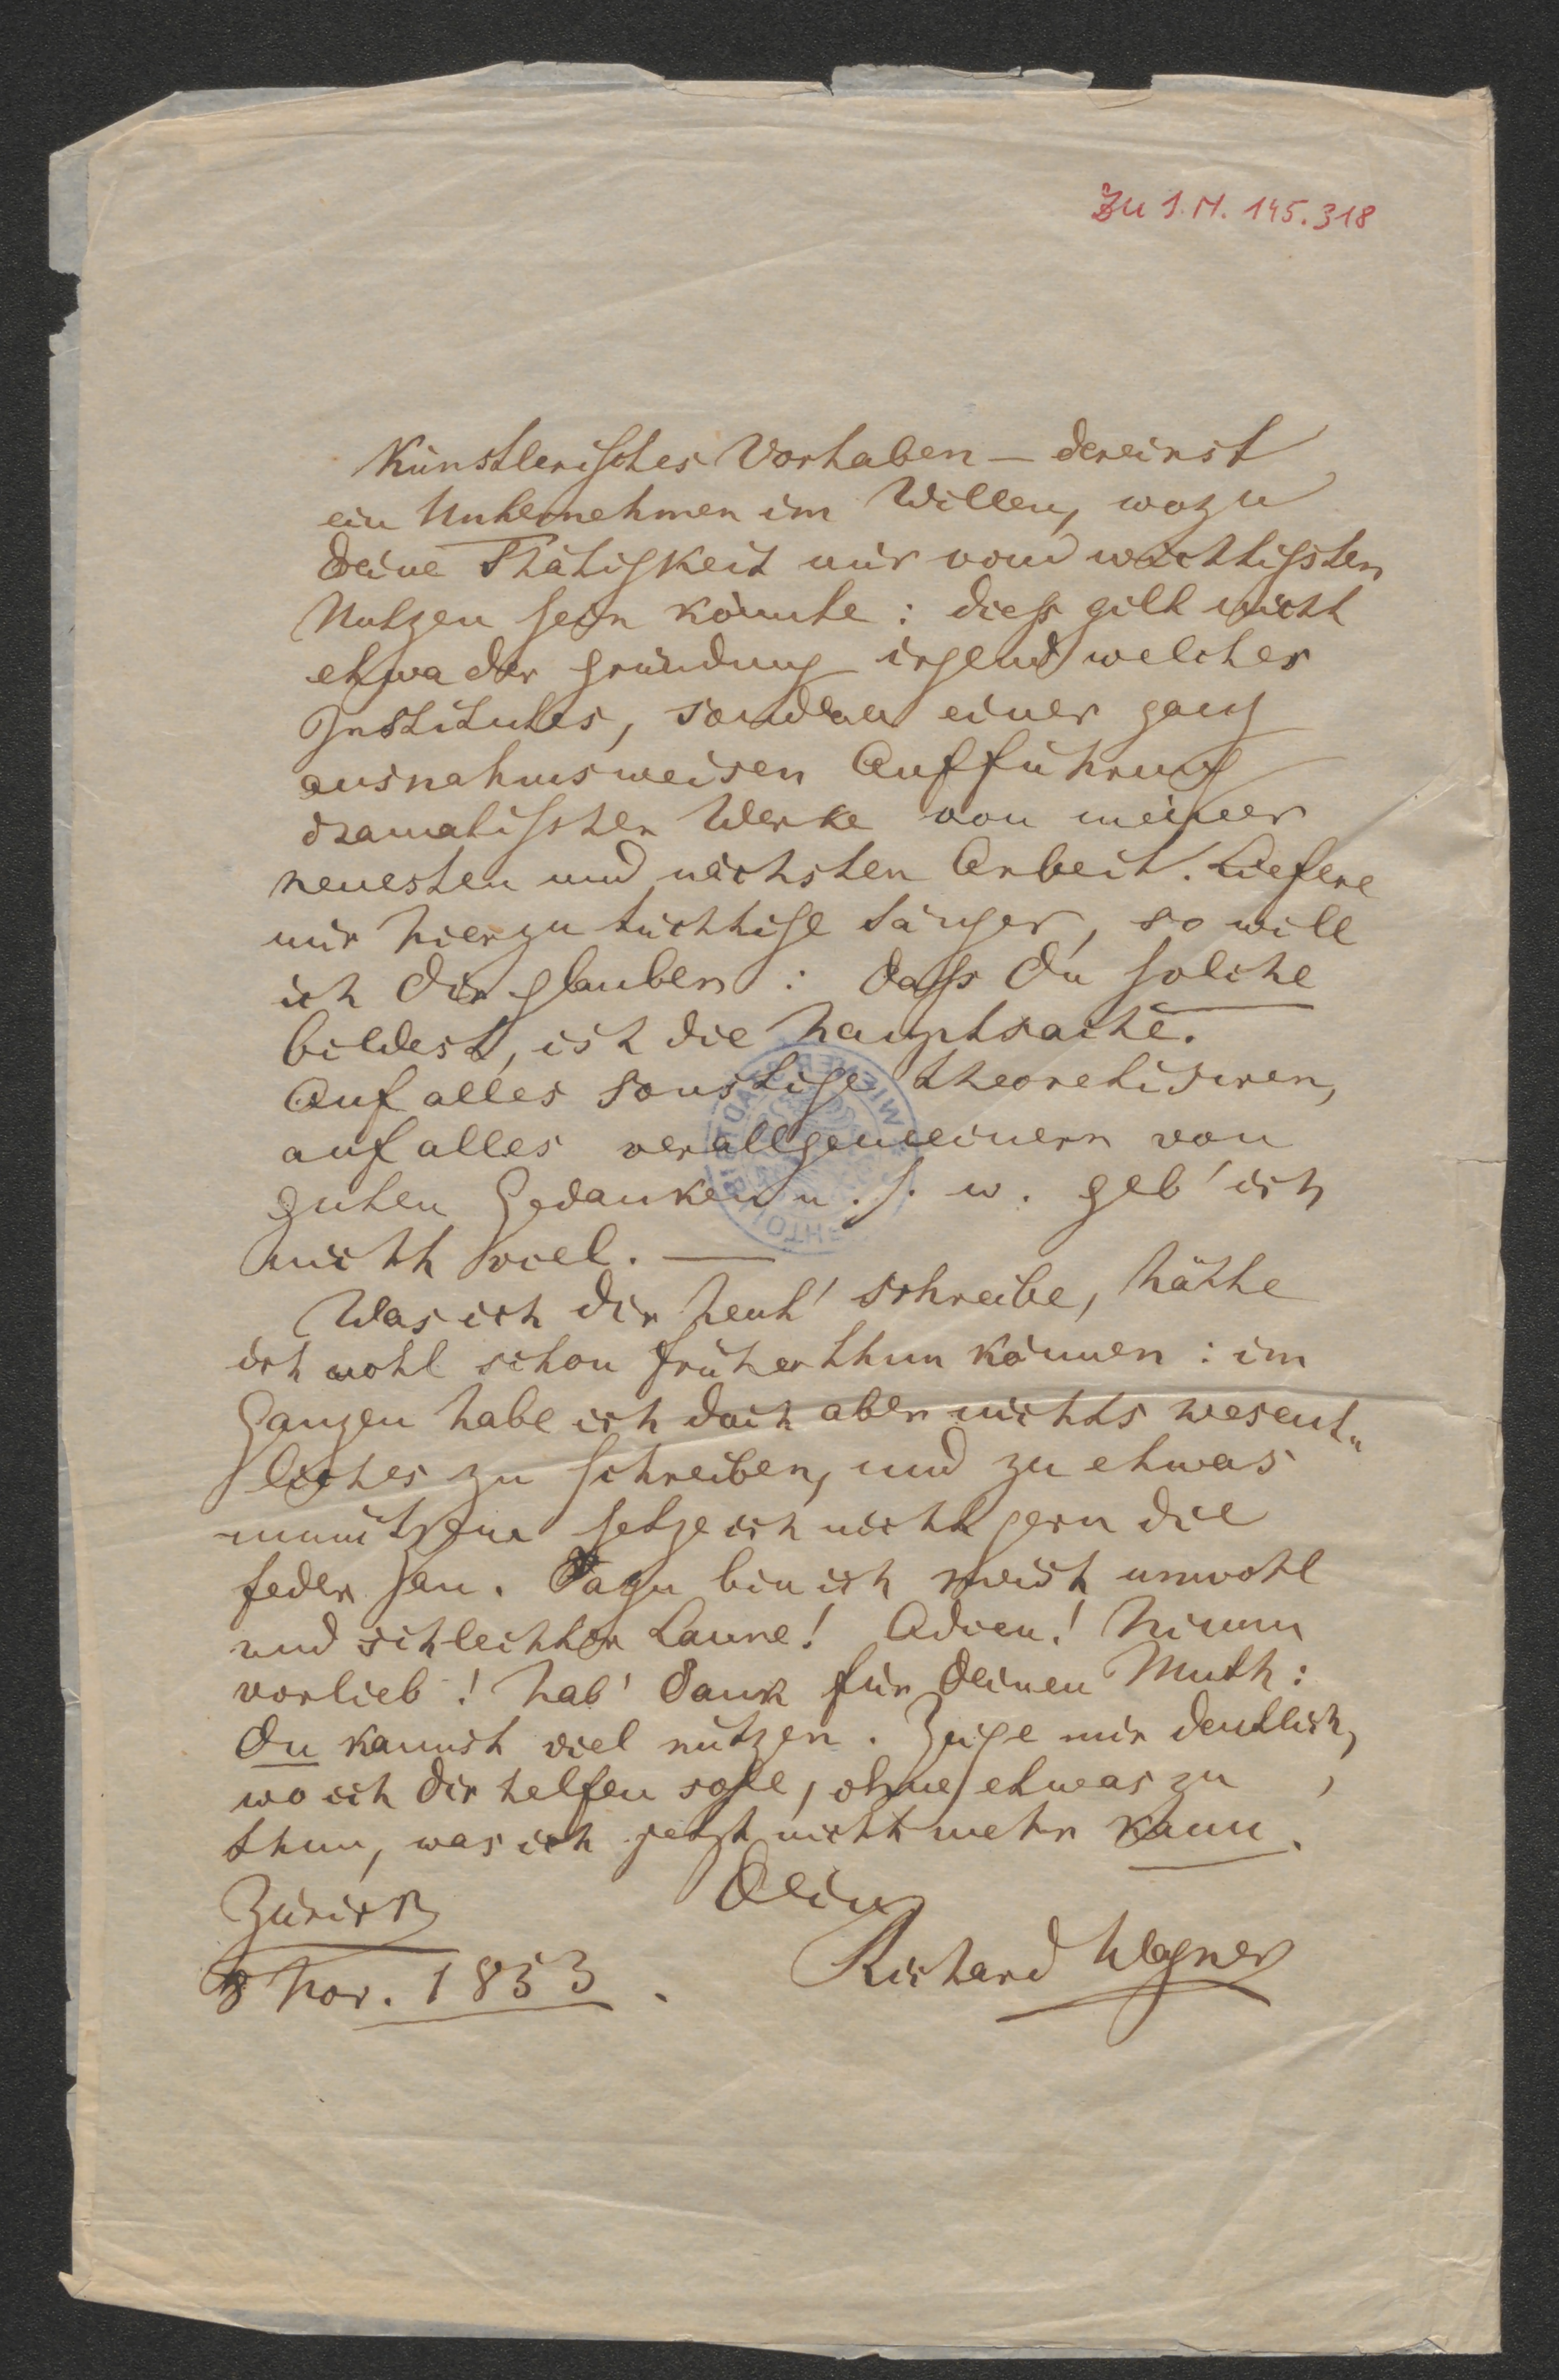 Zu I.N. 145.318
Künstlerisches Vorhaben – dereinst
ein Unternehmen im Willen, wozu
Deine Thätigkeit mir vom wichtigsten
Nutzen sein könnte: diess gilt nicht
etwa der Gründung irgend welches
Institutes, sondern einer ganz
ausnahmsweisen Aufführung
dramatischer Werke von meiner
neuesten und nächsten Arbeit. Liefere
mir hierzu tüchtige Sänger, so will
ich Dir glauben: dass Du solche
bildest, ist die Hauptsache.
Auf alles sonstige theoretisiren,
auf alles verallgemeinern von
guten Gedanken u. s. w. geb' ich
nicht viel. —
Was ich Dir heut' schreibe, hätte
ich wohl schon früher thun können: im
Ganzen habe ich doch aber nichts wesent„
liches zu schreiben, und zu etwas
unnützem setze ich nicht gern die
Feder an. Dazu bin ich meist unwohl
und schlechter Laune! Adieu! Nimm
vorlieb! Hab' Dank für Deinen Muth:
Du kannst viel nützen. Zeige mir deutlich,
wo ich Dir helfen solle, ohne etwas zu
thun, was ich jetzt nicht mehr kann.
Zürich Dein
8 Nov. 1853. Richard Wagner